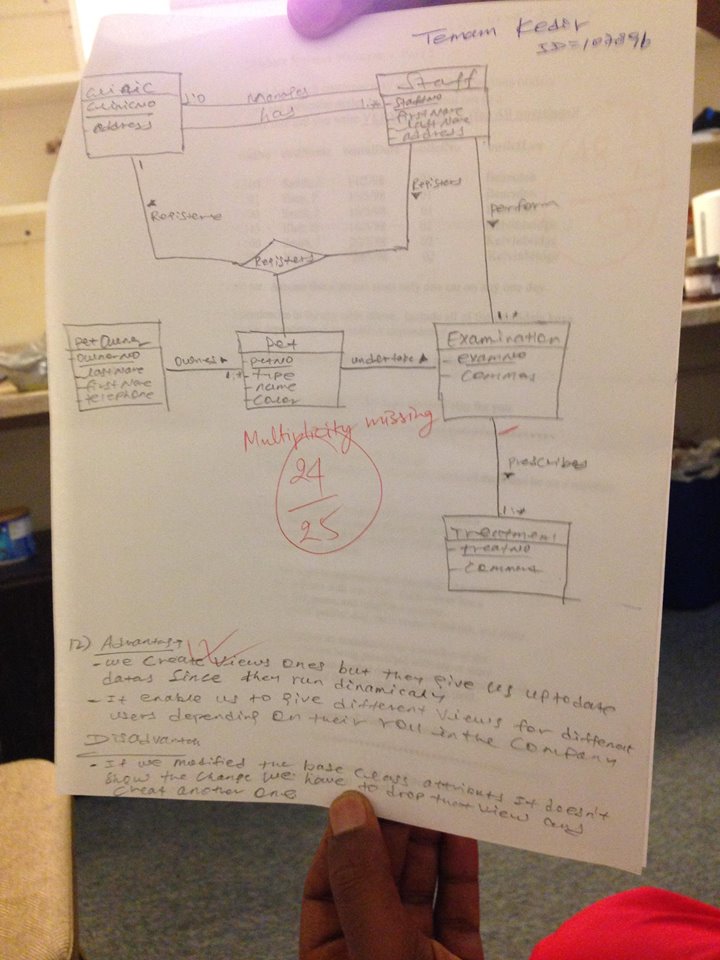 Temam Keder
ID=107896
CliniC
ClinicNO
Address
Staff
StaffNO
firstName
lastName
address
has
1..*
1
Registers
Registers
perform
Registers
1..*
petOwner
OwnerNO
lastName
firstName
telephone
Ownes
1..*
pet
petNO
type
name
Color
undertake
Examination
examNO
Multiplicity missing
24
25
prescribes
1..*
Treatment
treatNO
12)
- we create views ones but they give us uptodate
datas Since they run dinamicaly
- It enable us to give different views for different
users depending on their roll in the Company
- If we modified the base class attributs It doesn't
show the change we have to drop that view and
creat another one